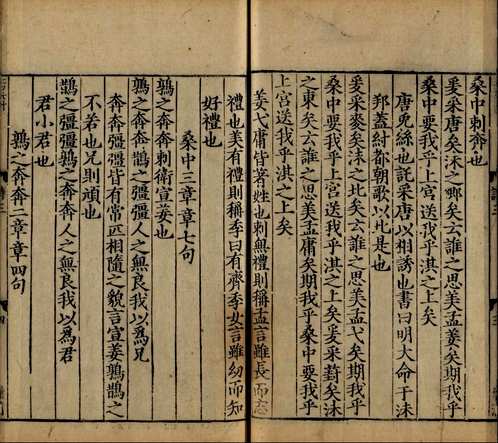 桑中刺奔也
爰采唐矣沬之鄉矣云誰之思美孟姜矣期我乎
桑中要我乎上宮送我乎淇之上矣
唐兔絲也託采唐以相誘也書曰明大命于沬
邦蓋紂都朝歌以北是也
爰采麥矣沬之北矣云誰之思美孟弋矣期我乎
桑中要我乎上宮送我乎淇之上矣爰采葑矣沬
之東矣云誰之思美孟庸矣期我乎桑中要我乎
上宮送我乎淇之上矣
姜弋庸皆著姓也刺無禮則稱孟言雖長而忘
禮也美有禮則稱季曰有齊季女言雖幼而知
好禮也
桑中三章章七句
鶉之奔奔刺衛宣姜也
鶉之奔奔鵲之彊彊人之無良我以為兄
奔奔彊彊皆有常匹相隨之貌言宣姜鶉鵲之
不若也兄則頑也
鵲之彊彊鶉之奔奔人之無良我以為君
君小君也
鶉之奔奔二章章四句